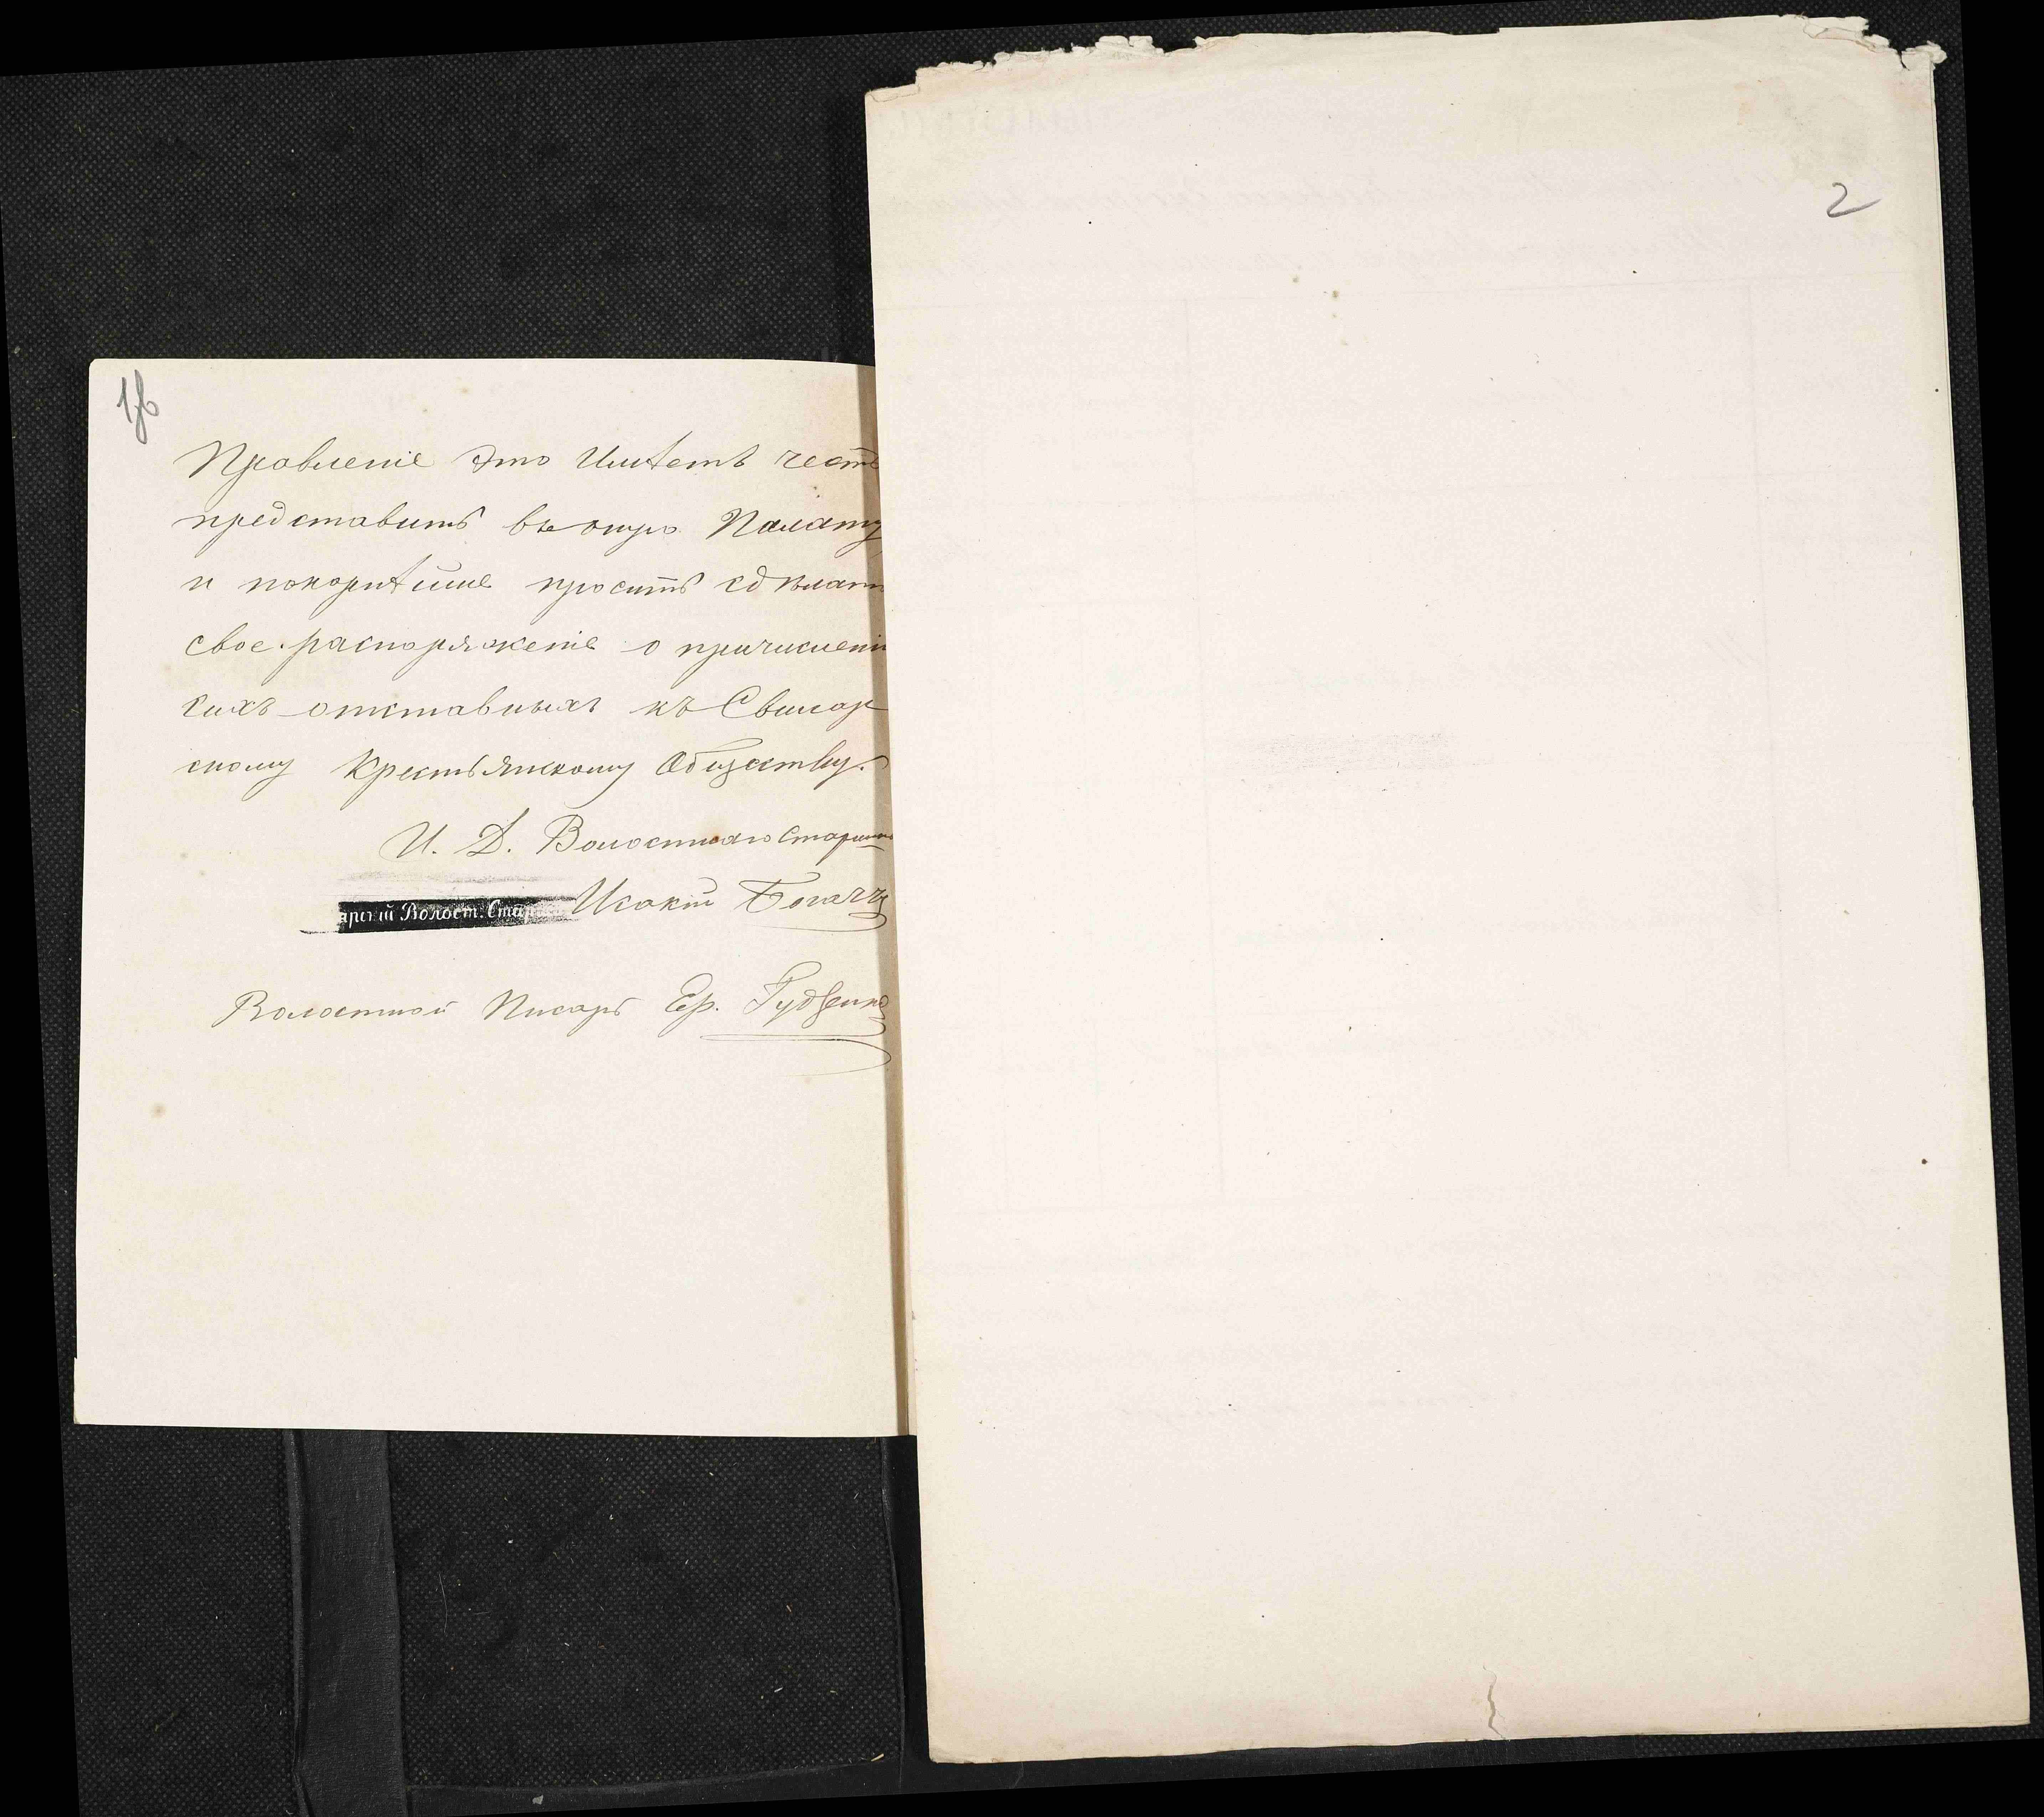 1б
Правленіе это имѣетъ честь
представить въ оную Палату
и покорнѣйше проситъ сдѣлать
свое распоряженіе о причисленіи
сихъ отставныхъ къ Свилар
скому Крестьянскому Обществу.
И. Д. Волостнаго Старшины
арскій Волост. Стар Исакій Богачъ
Волостной Писарь Ер. Гудзенко
2